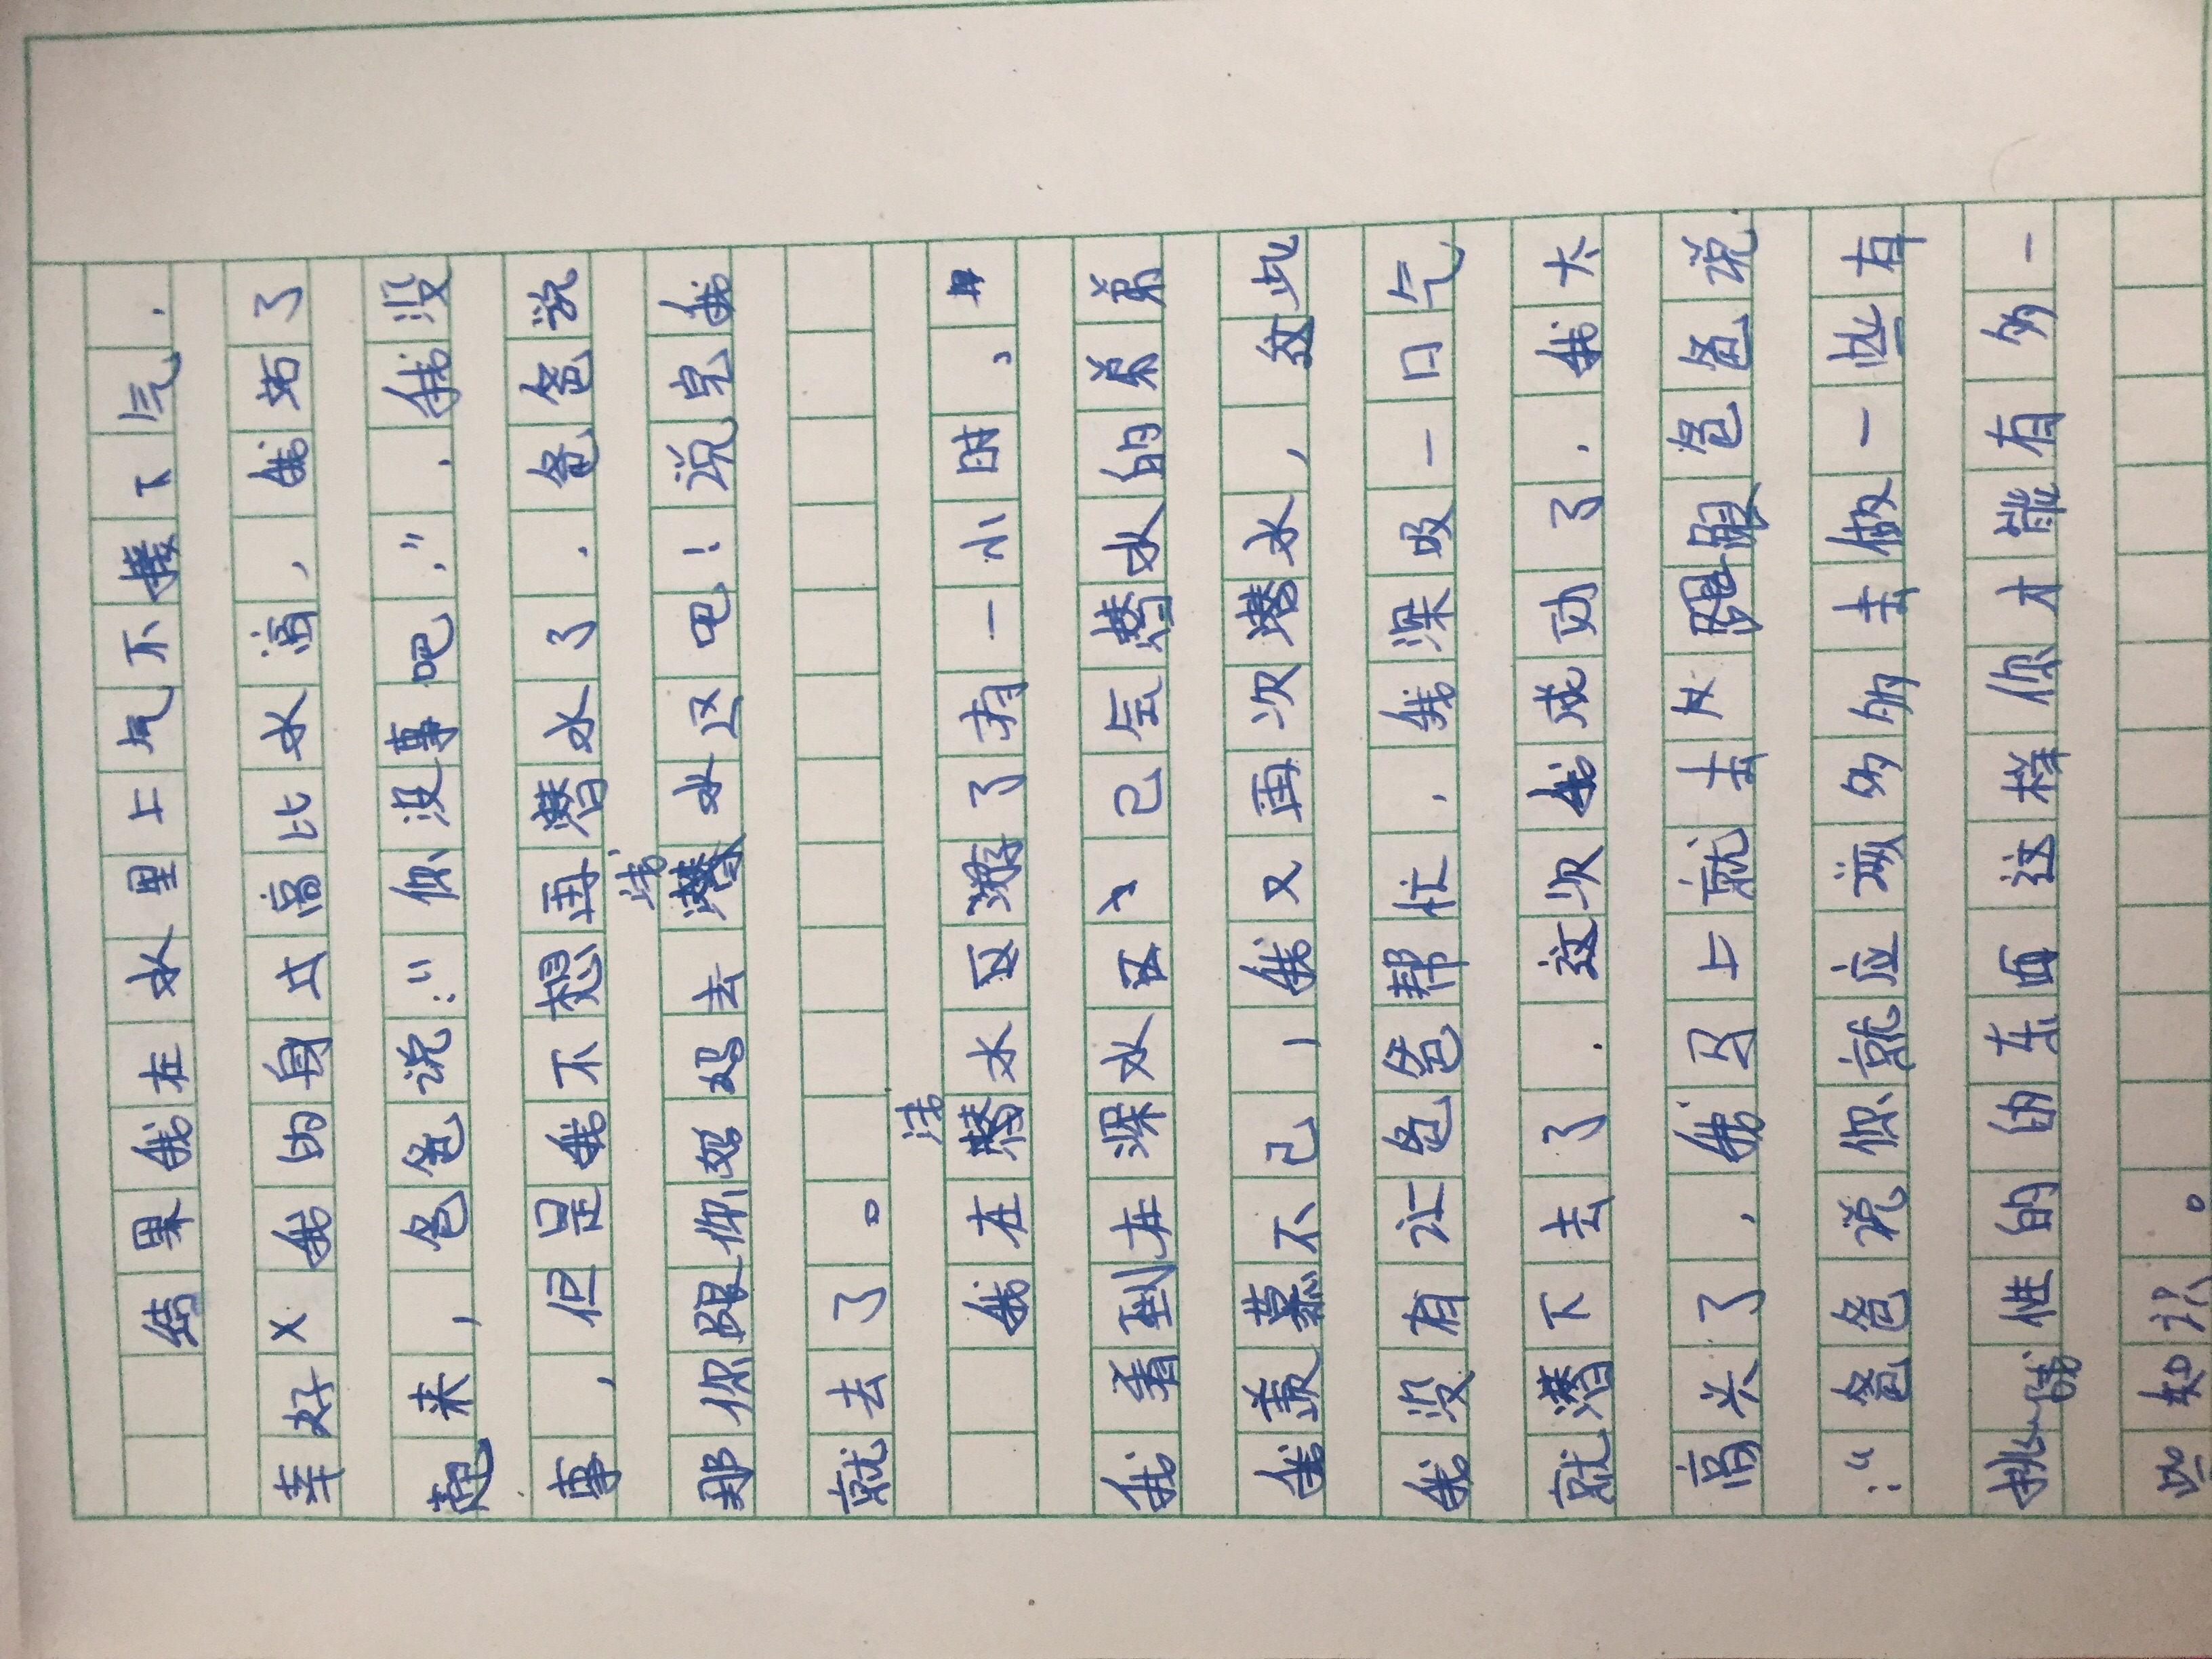 结果我在水里上气不接下气.
幸好我的身过高比水滴,我站了
起来,爸爸说:"你没事吧.".我没
事,但是我不想再潜水了.爸爸说
那你跟你妈妈去浅水区吧!说完我
就去了。
我在浅水区游了有一小时,
我看到在深水区自己潜水的弟弟
我羡慕不已,我又再次潜水,这次
我没有让爸爸帮忙.我深吸一口气
就潜下去了.这次我成功了.我太
高兴了,我马上就去又跟爸爸说
:"爸爸说你就应该多多去做一些有
挑战性的的东西这样你才能有多一
些知识。